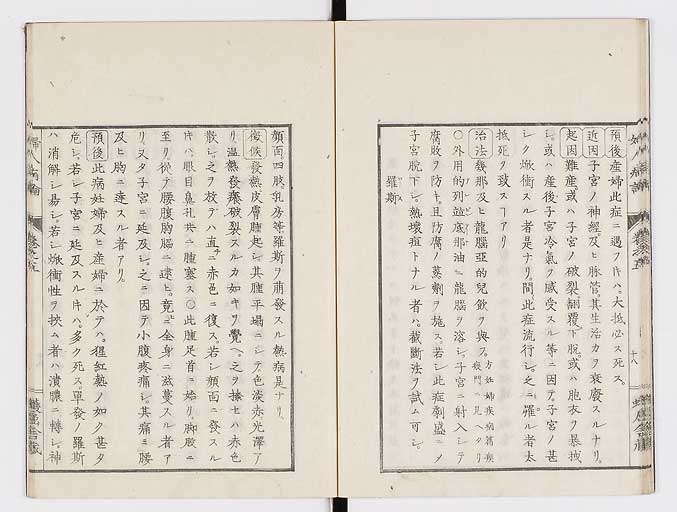 預後產婦此症ニ遇フ片ハ。大抵必ス死ス。
近因子宮ノ神經。及ヒ脉管。其生活力ヲ衰廢スルナリ。
起因難產。或ハ子宮ノ破裂翻覆下脫。或ハ胞衣ヲ暴拽
シ。或ハ產後子宮冷氣ヲ感受スル等ニ因テ子宮ノ甚
シク焮衝スル者是ナリ。間此症流行シ。之ニ罹ル者太
抵死ヲ致スヿアリ
治法幾那及ヒ龍腦亞的兒飲ヲ與フ。方妊婦疾病篤疾
病門ニ見ヘタリ
〇外用的列並底那油ニ龍腦ヲ溶シ。子宮ニ射入シテ
腐敗ヲ防キ。且防腐ノ蒸劑ヲ施ス。若シ此症劇盛ニメ
子宮脫下シ。熱壞疽トナル者ハ。截斷法ヲ試ム可シ。
羅斯
顏面四肢。乳房等羅斯ヲ萠發スル熱病是ナリ。
徵候發熱皮膚腫起シ。其腫平塌ニシテ色淡赤光澤ア
リ温熱發瘆破裂スルカ如キヲ覺ヘ。之ヲ搸セハ赤色
散シ。之ヲ放テハ直チニ赤色ニ復ス。若シ顏面ニ發スル
片ハ眼目鼻孔夾ニ腫塞ス〇此腫足首ニ始リ。脚股ニ
至リ。從テ腰腹胸腦ニ逮ヒ。竟ニ全身ニ滋蔓スル者ア
リ。又タ子宮ニ延及シ。之ニ因テ小腹疼痛シ。其痛ミ腰
及ヒ胸ニ達スル者アリ。
預後此病妊婦及ヒ產婦ニ於テハ。猩紅熱ノ如ク甚タ
危シ。若シ子宮ニ延及スル片ハ。多ク死ス。單發ノ羅斯
ハ消解シ易シ。若シ焮衝性ヲ挾ム者ハ潰膿ニ轉シ。神
十八